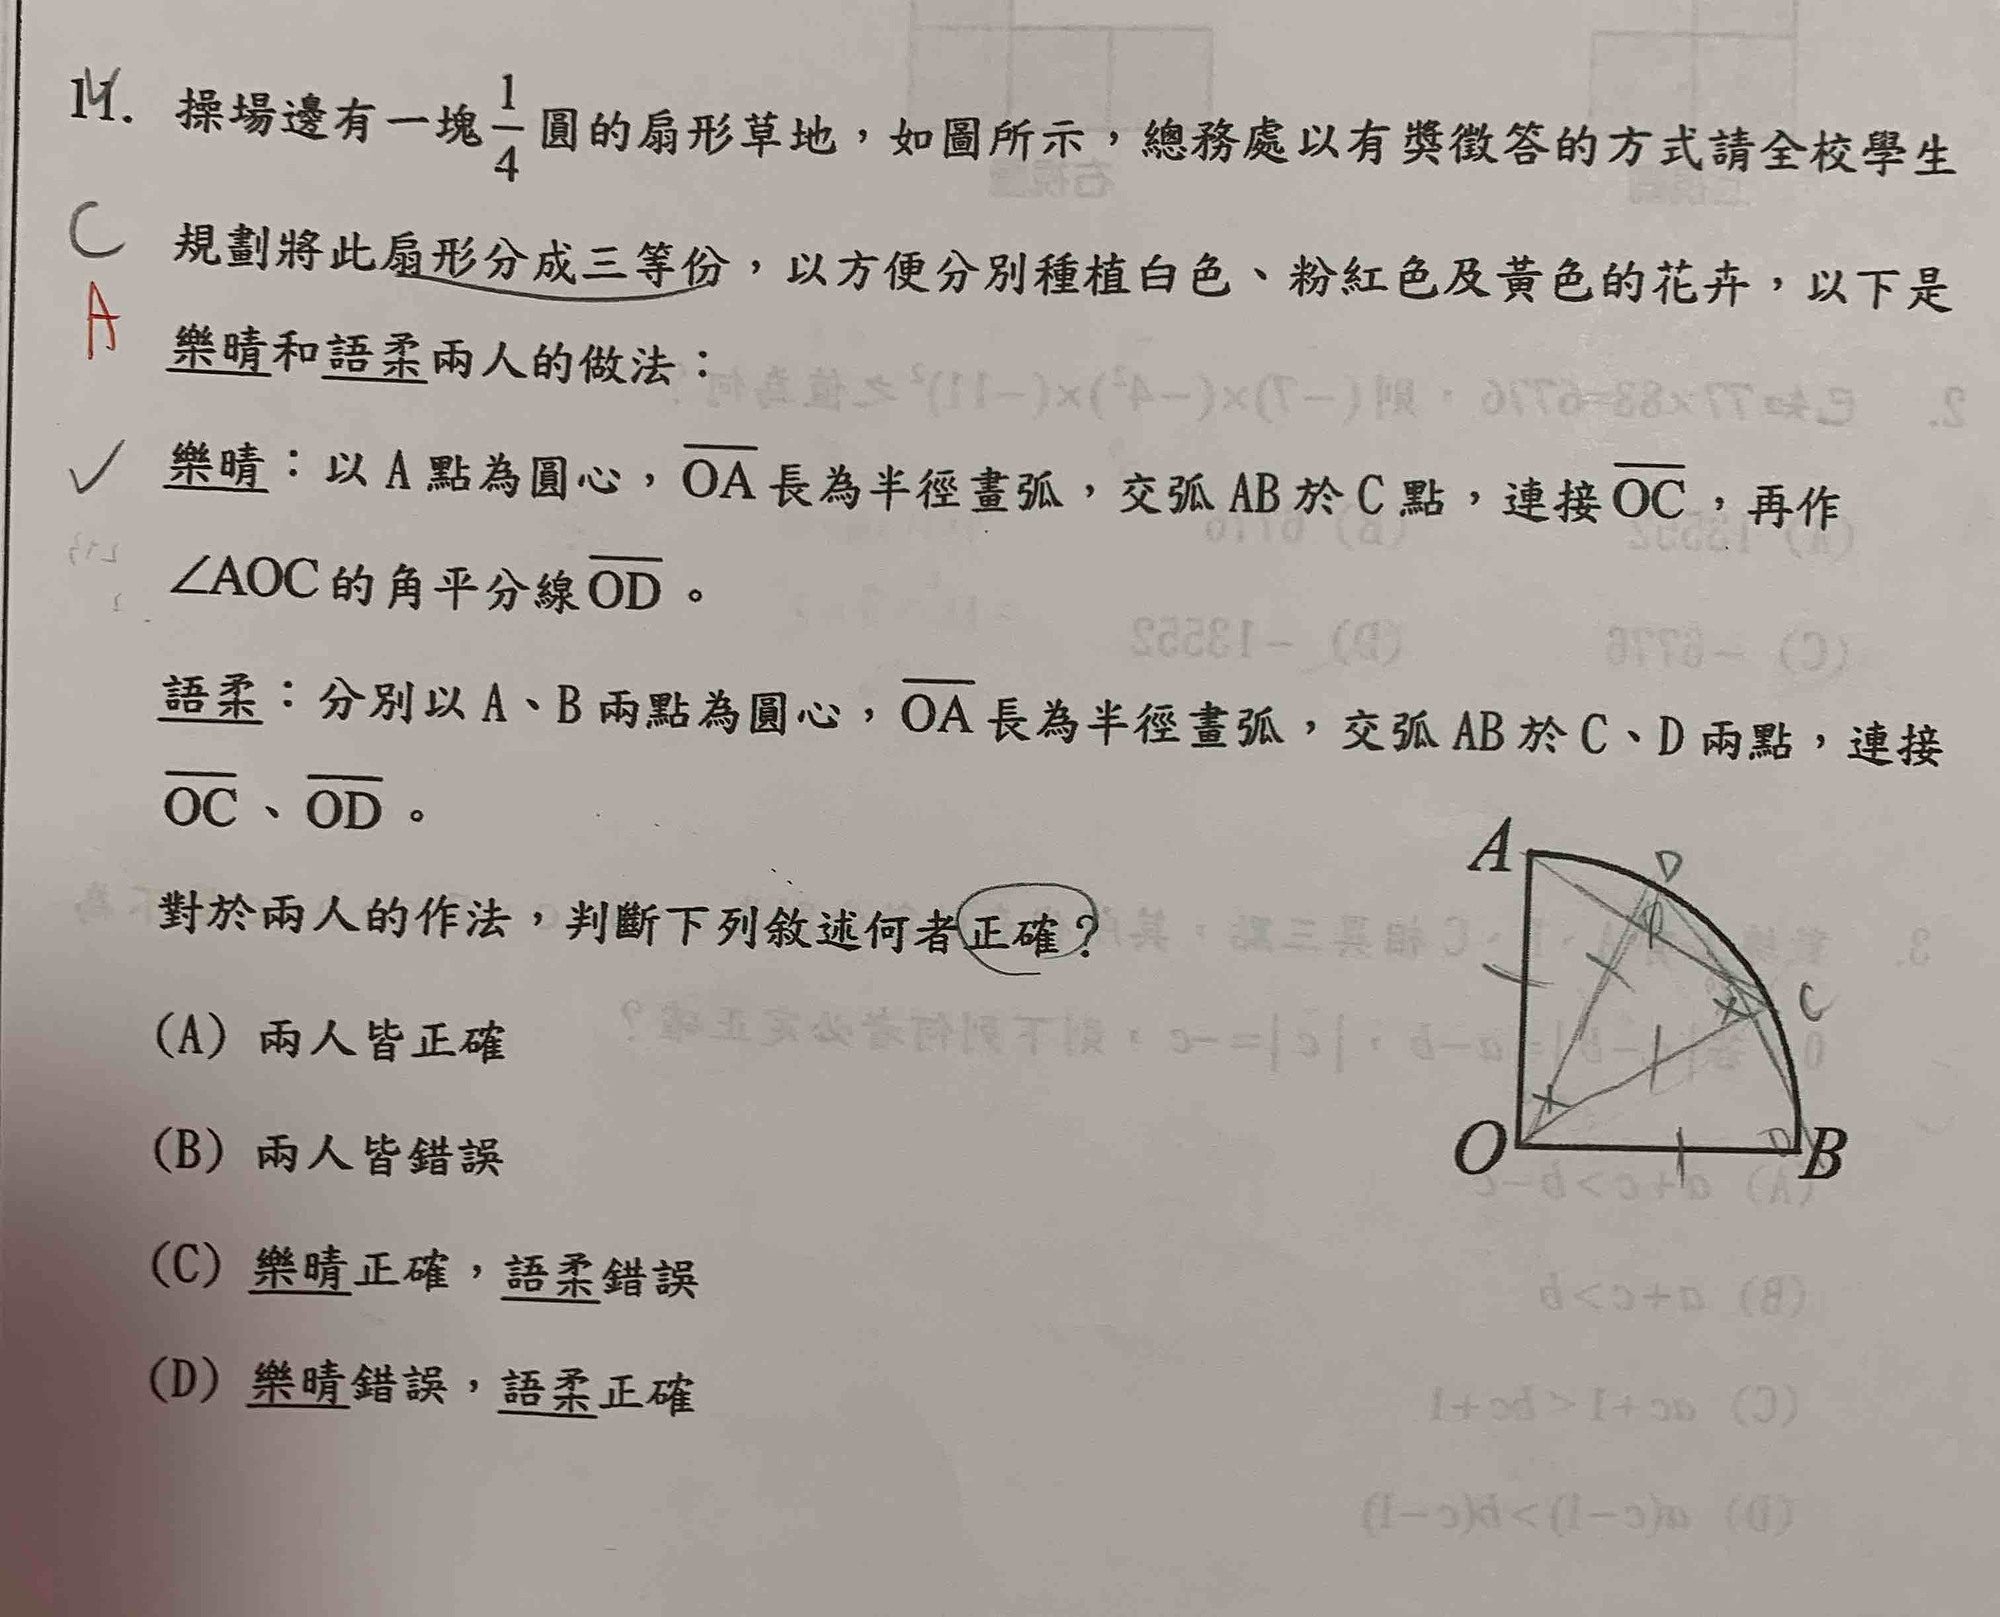 14. 操場邊有一塊1/4圓的扇形草地，如圖所示，總務處以有獎徵答的方式請全校學生
C 規劃將此扇形分成三等份，以方便分別種植白色、粉紅色及黃色的花卉，以下是
A 樂晴和語柔兩人的做法：
✓ 樂晴：以 A 點為圓心，OA 長為半徑畫弧，交弧 AB 於 C 點，連接 OC，再作
∠AOC 的角平分線 OD。
語柔：分別以 A、B 兩點為圓心，OA 長為半徑畫弧，交弧 AB 於 C、D 兩點，連接
OC、OD。
對於兩人的作法，判斷下列敘述何者正確？
(A) 兩人皆正確
(B) 兩人皆錯誤
(C) 樂晴正確，語柔錯誤
(D) 樂晴錯誤，語柔正確
A
D
C
O
B
2. 已知77×88=6776，則(−7)×(−4²)×(−11)²之值為何？
(A) 13552
(B) 6776
(C) −6776
(D) −13552
3.
(A) a+c>b−c
(B) a+c>b
(C) ac+1<bc+1
(D) a(c−1)>b(c−1)